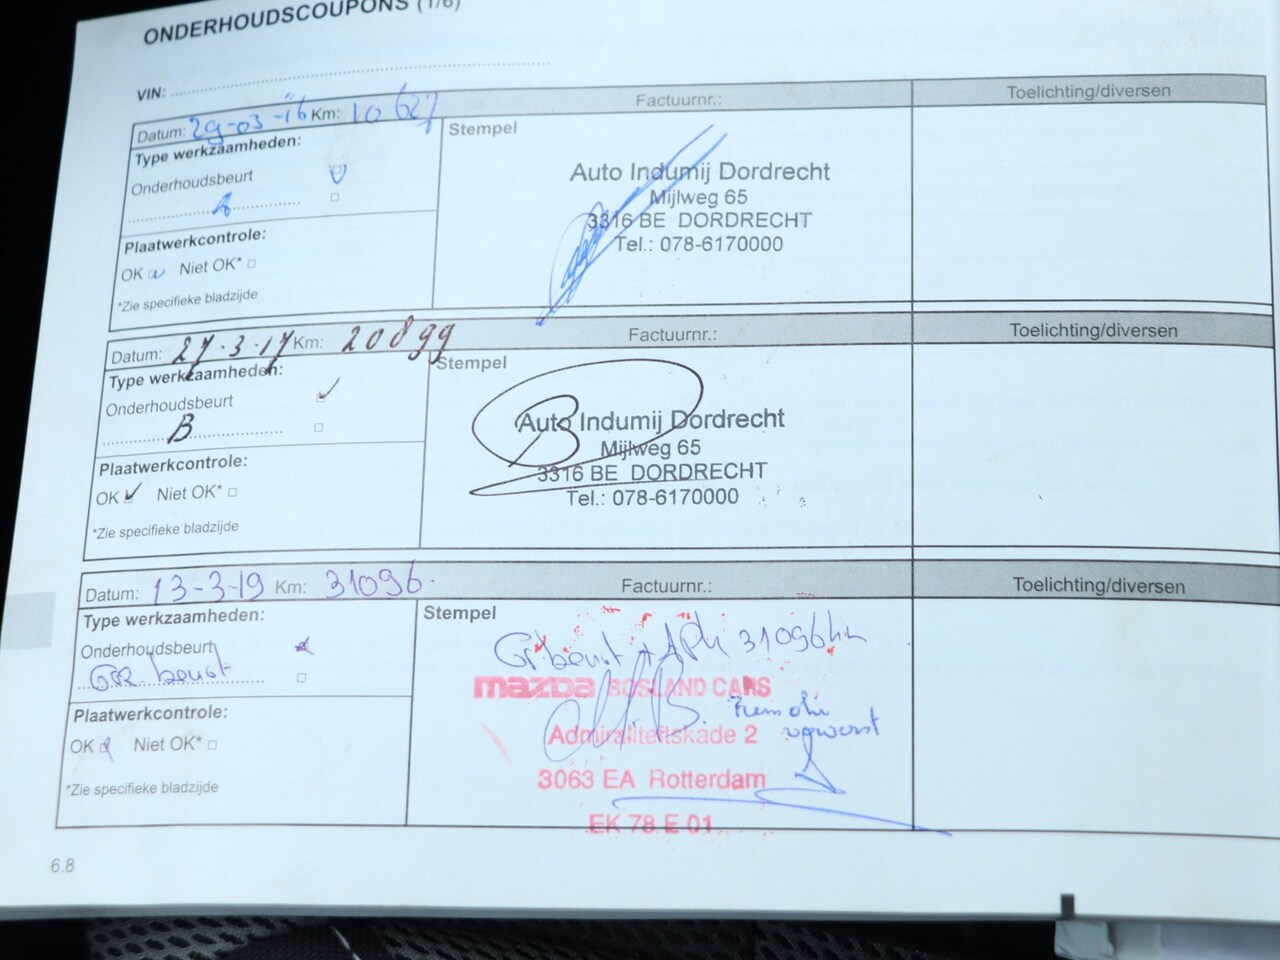 ONDERHOUDSCOUPONS (1/6)
VIN:
Datum: 29-03-'16 Km: 10627 Factuurnr.: Toelichting/diversen
Type werkzaamheden:
Stempel
Onderhoudsbeurt
A
Auto Indumij Dordrecht
Mijlweg 65
3316 BE DORDRECHT
Tel.: 078-6170000
Plaatwerkcontrole:
OK Niet OK*
*Zie specifieke bladzijde
Datum: 27.3.17 Km: 20899 Factuurnr.: Toelichting/diversen
Type werkzaamheden:
Stempel
Onderhoudsbeurt
B
Auto Indumij Dordrecht
Mijlweg 65
3316 BE DORDRECHT
Tel.: 078-6170000
Plaatwerkcontrole:
OK Niet OK*
*Zie specifieke bladzijde
Datum: 13-3-19 Km: 31096. Factuurnr.: Toelichting/diversen
Type werkzaamheden:
Stempel
Onderhoudsbeurt
beurt
Gr beurt + APK 31096km
mazda BOSLAND CARS
Remolie
Admiraliteitskade 2
3063 EA Rotterdam
EK 78 E 01
Plaatwerkcontrole:
OK Niet OK*
*Zie specifieke bladzijde
6.8